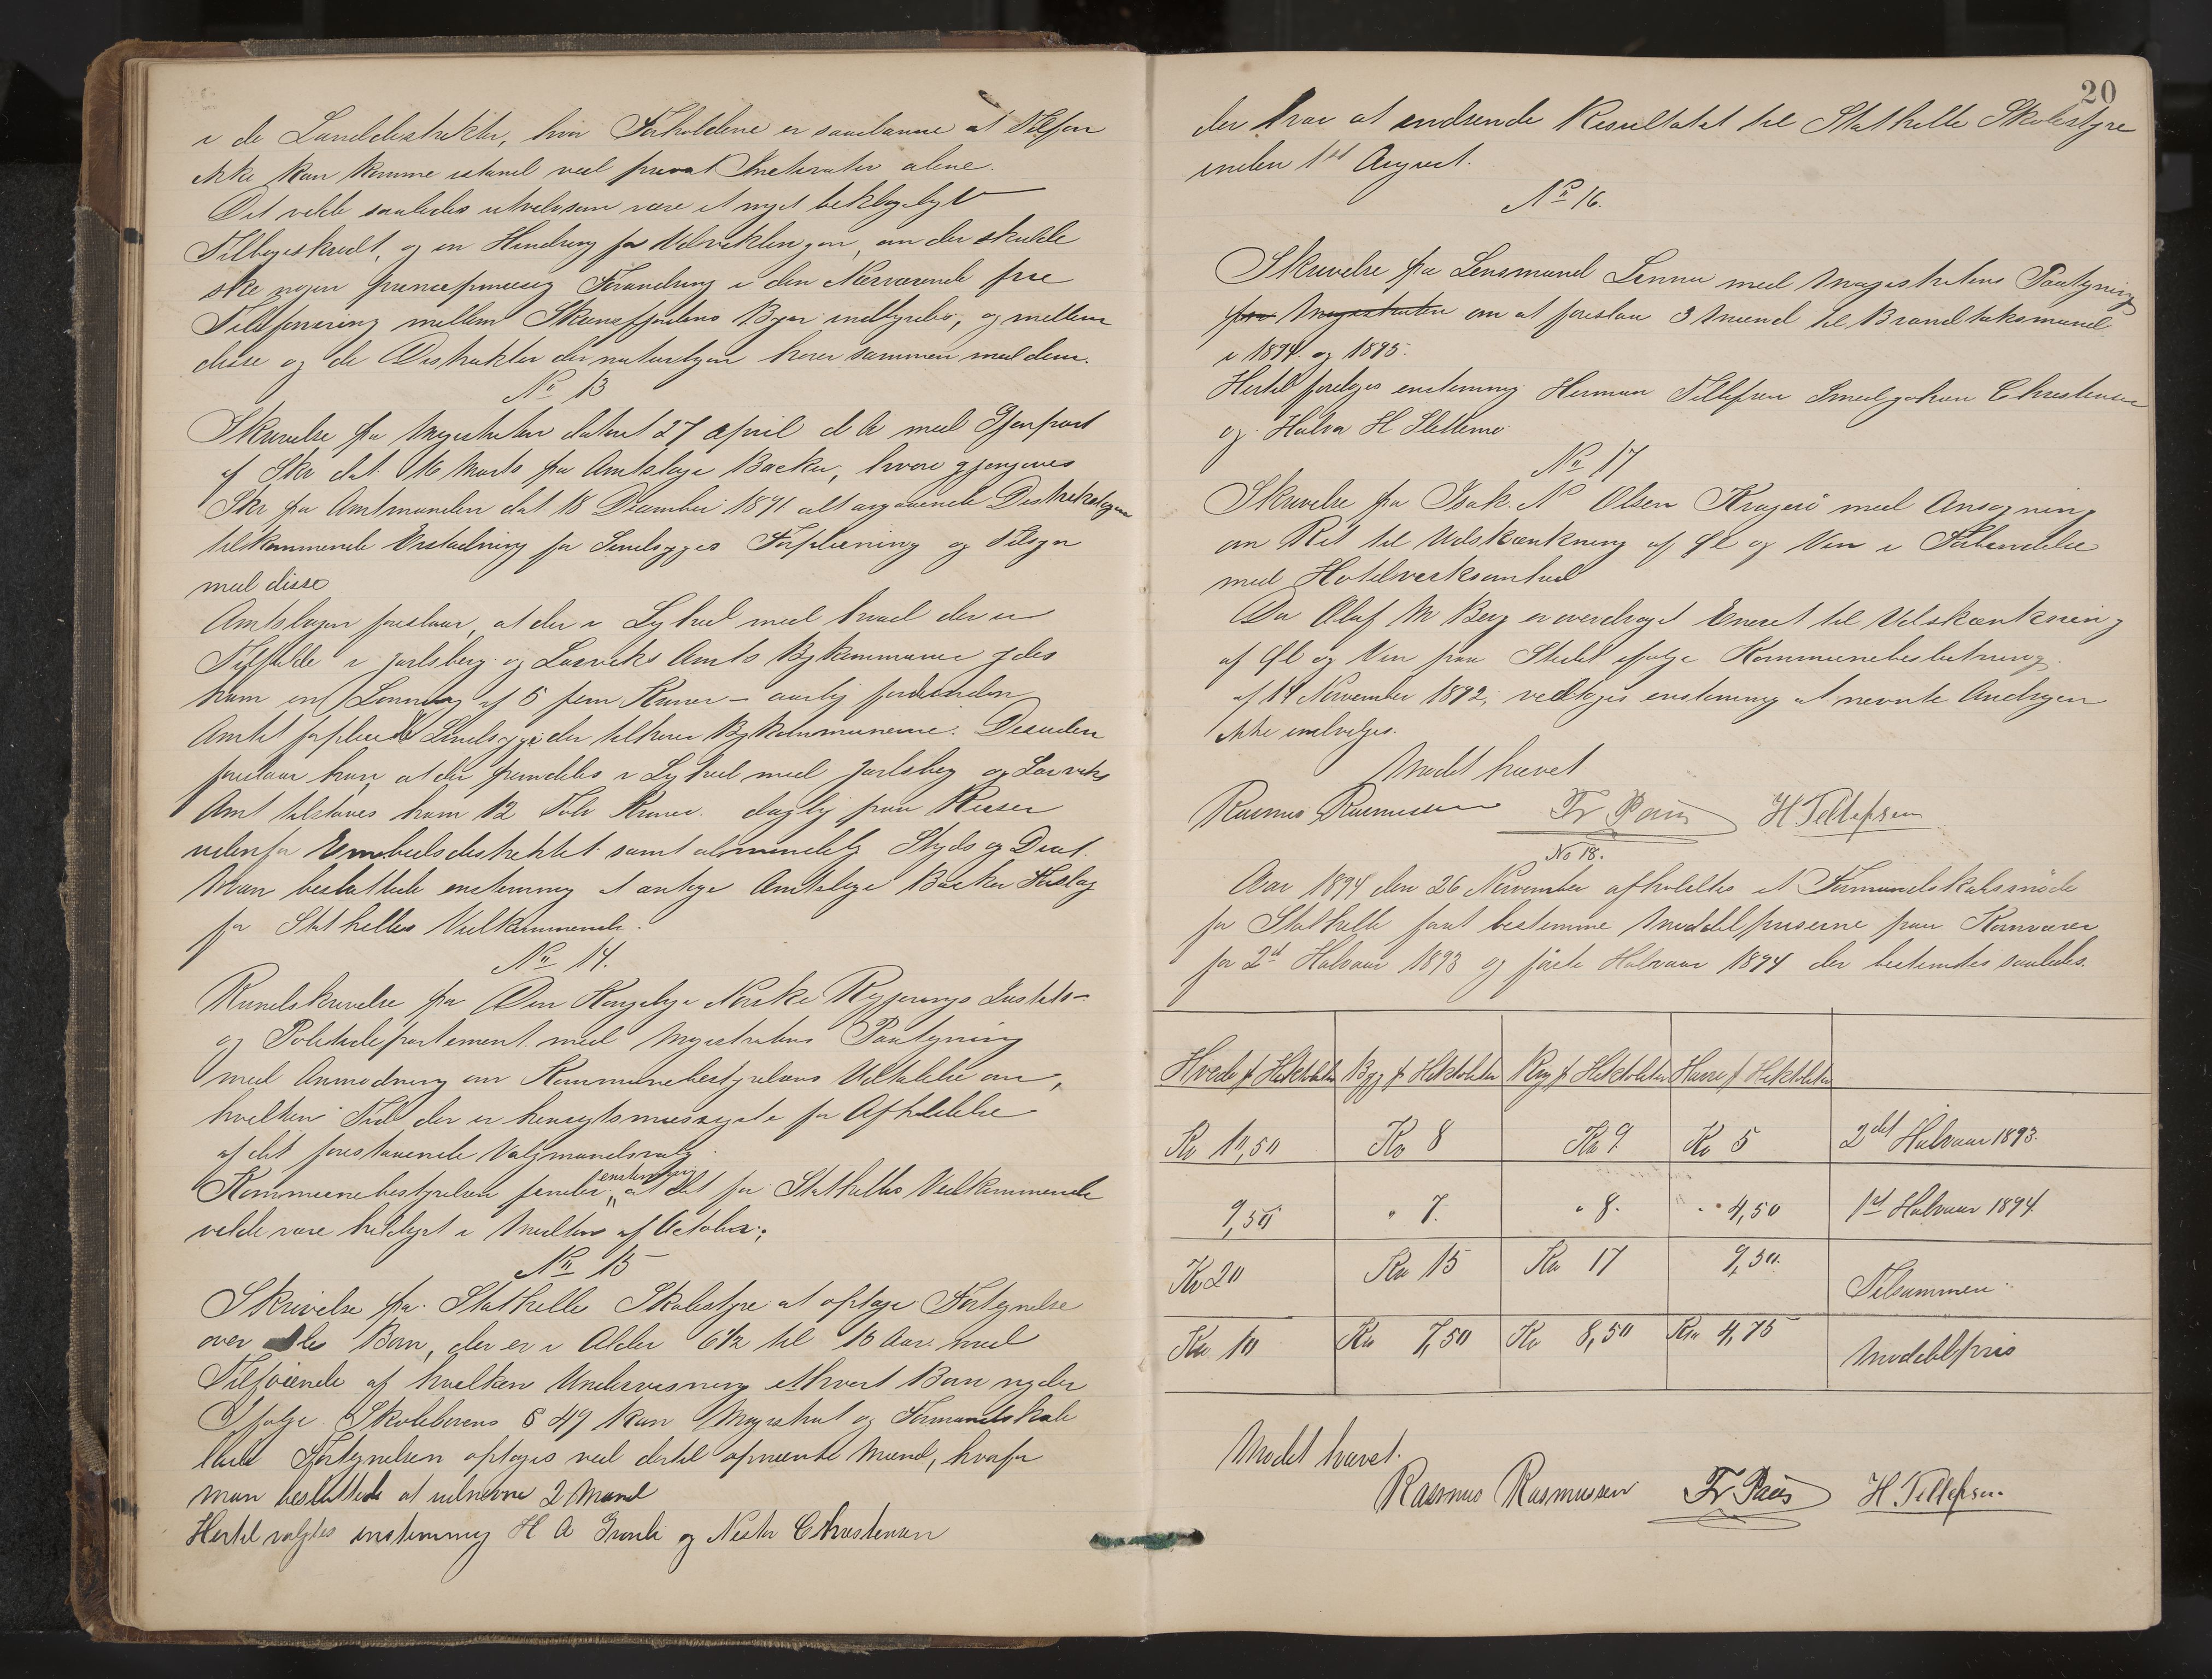 i de Landdistrikter, hvor Forholdene er saadanne at Telefon
ikke kan komme istand ved privat Initiativ alene.
Det vilde saaledes utvilsom være et meget beklageligt
Tilbageskridt, og en Hindring for Udviklingen, om der skulde
ske nogen principmæssig Forandring i den Nærværende frie
Telefonering mellem Skiensfjordens Byer indbyrdes, og mellem
disse og de Distrikter der naturligen hører sammen med dem.
No 13
Skrivelse fra Magistraten dateret 27 April d A med Gjenpart
af Skr dat. 16 Marts fra Amtslæge Backer, hvori gjengives
Skr fra Amtmanden dat 18 December 1891 alt angaaende Distriktslægen
tilkommende Erstadning for Sindsyges Forpleining og Tilsyn
med disse
Amtslægen foreslaar, at der i Lighed med hvad der er
Tilfælde i Jarlsberg og Laurviks Amts Bykommuner ydes
ham en Lønning af 5 fem Kroner – aarlig for hver den
Amtet forpleiede Sindsyge der tilhører Bykommunerne. Desuden
foreslaar han, at der fremdeles i Lighed med Jarlsberg og Laurviks
Amt tilstaaes ham 12 Tolv Kroner daglig paa Reiser
udenfor Embedsdistriktet samt almindelig Skyds og Diæt.
Man besluttede enstemmig at antage Amtslæge Backer Forslag
for Stathelles Vedkommende.
No 14.
Rundskrivelse fra Den Kongelige Norske Regjerings Justits-
og Politidepartement med Magistratens Paategning
med Anmodning om Kommunebestyrelsens Udtalelse om,
hvilken Tid der er hensigtsmæssigste for Afholdelse
af det forestaaende Valgmandsvalg.
Kommunebestyrelsen fandt enstemmig at det for Stathelles Vedkommende
vilde være heldigst i Midten af October.
No 15
Skrivelse fra Stathelle Skolestyre at optage Fortegnelse
over de Børn, der er i Alder 6½ til 15 Aar med
Tilføiende af hvilken Undervisning ethvert Barn nyder
Ifølge Skolelovens § 49 kan Magistrat og Formandskab
lade Fortegnelsen optages ved dertil opnævnte Mænd, hvorfor
man besluttede at udnævne 2 Mænd
Hertil valgtes enstemmig H A Grønli og Nester Christensen
20
der har at indsende Resultatet til Stathelle Skolestyre
inden 1st August.
No 16.
Skrivelse fra Lensmand Linna med Magistratens Paategning
fra Magistraten om at foreslaa 3 Mænd til Brandtaksmænd
i 1894 og 1895.
Hertil foreloges enstemmig Herman Tellefsen Smedjohan Christensen
og Halvor H Slettemo
No 17
Skrivelse fra Isak No Olsen Kragerø med Ansøgning
om Ret til Udskænkning af Øl og Vin i Forbindelse
med Hotelverksomhed
Da Oluf M Berg er overdraget Eneret til Udskænkning
af Øl og Vin paa Stedet ifølge Kommunebeslutning
af 14 November 1892, vedtoges enstemmig at nævnte Andragen
ikke indvilges.
Mødet hævet
Rasmus Rasmussen Fr Paus H Tellefsen
No 18.
Aar 1894 den 26 November afholdtes et Formandskabsmøde
for Stathelle for at bestemme Middelpriserne paa Kornvarer
for 2det Halvaar 1893 og første Halvaar 1894 der bestemtes saaledes.
Hvede pr Hektoliter Byg pr Hektoliter Rug pr Hektoliter Havre pr Hektoliter
Kr 10,50 Kr 8 Kr 9 Kr 5 2det Halvaar 1893.
9,50 " 7. " 8. " 4,50 1ste Halvaar 1894
Kr 20 Kr 15 Kr 17 9,50. Tilsammen
Kr 10 Kr 7,50 Kr 8,50 Kr 4,75 Middelpris
Mødet hævet.
Rasmus Rasmussen Fr Paus H Tellefsen